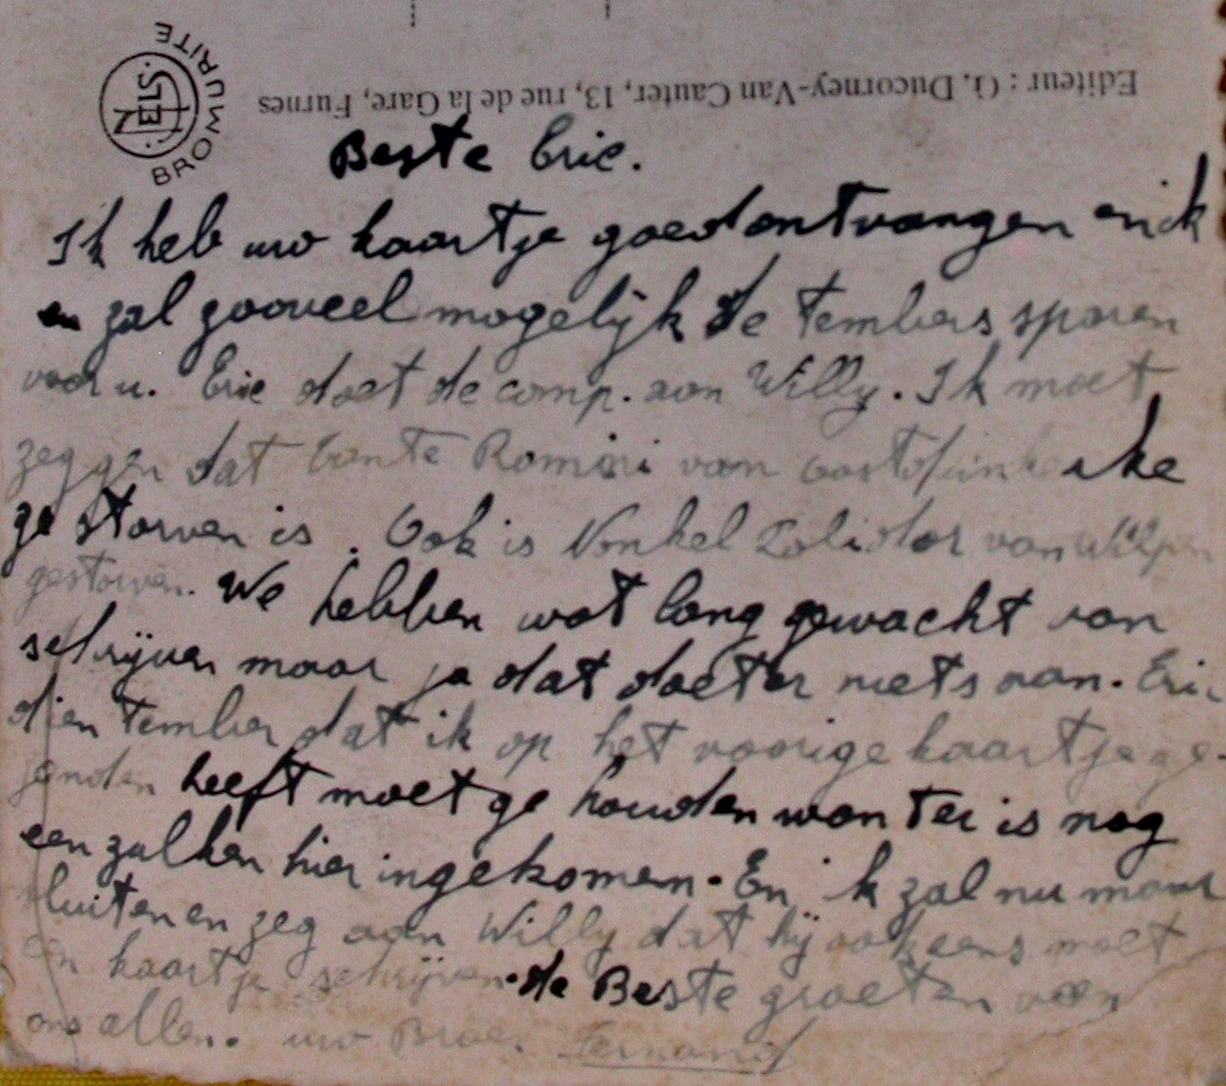 NELS
BROMURITE
Editeur : G. Ducorney-Van Cauter, 13, rue de la Gare, Furnes
Beste Eric.
Ik heb uw kaartje goed ontvangen en ik
en zal zooveel mogelijk de tembers sparen
voor u. Eric doet de comp. aan Willy. Ik moet
zeggen dat tante Romini van
gestorven is. Ook is Nonkel van Wulpen
gestorven. We hebben wat lang gewacht van
schrijven maar ja dat doet er niets aan. Eric
dien tember dat ik op het voorige kaartje ge-
zonden heeft moet ge houden want er is nog
een zulken hier ingekomen. En ik zal nu maar
sluiten en zeg aan Willy dat hij ook eens moet
een kaartje schrijven. de Beste groeten van
ons allen. uw Broer Fernand